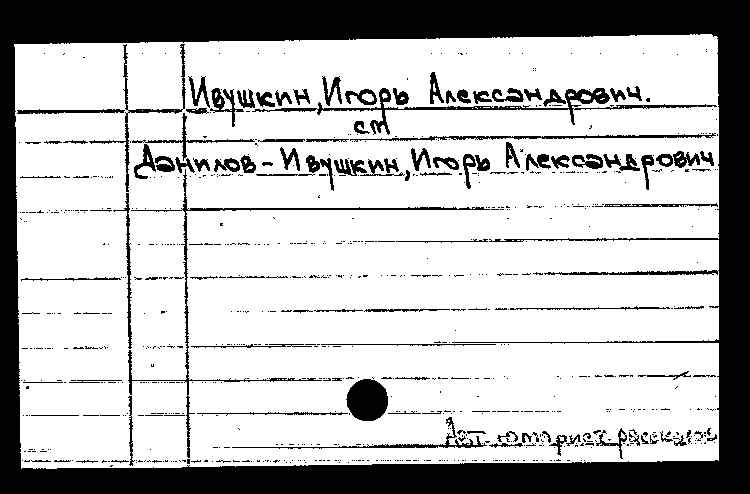 Ивушкин, Игорь Александрович.
см
Данилов-Ивушкин, Игорь Александрович
Авт. юморист. рассказов